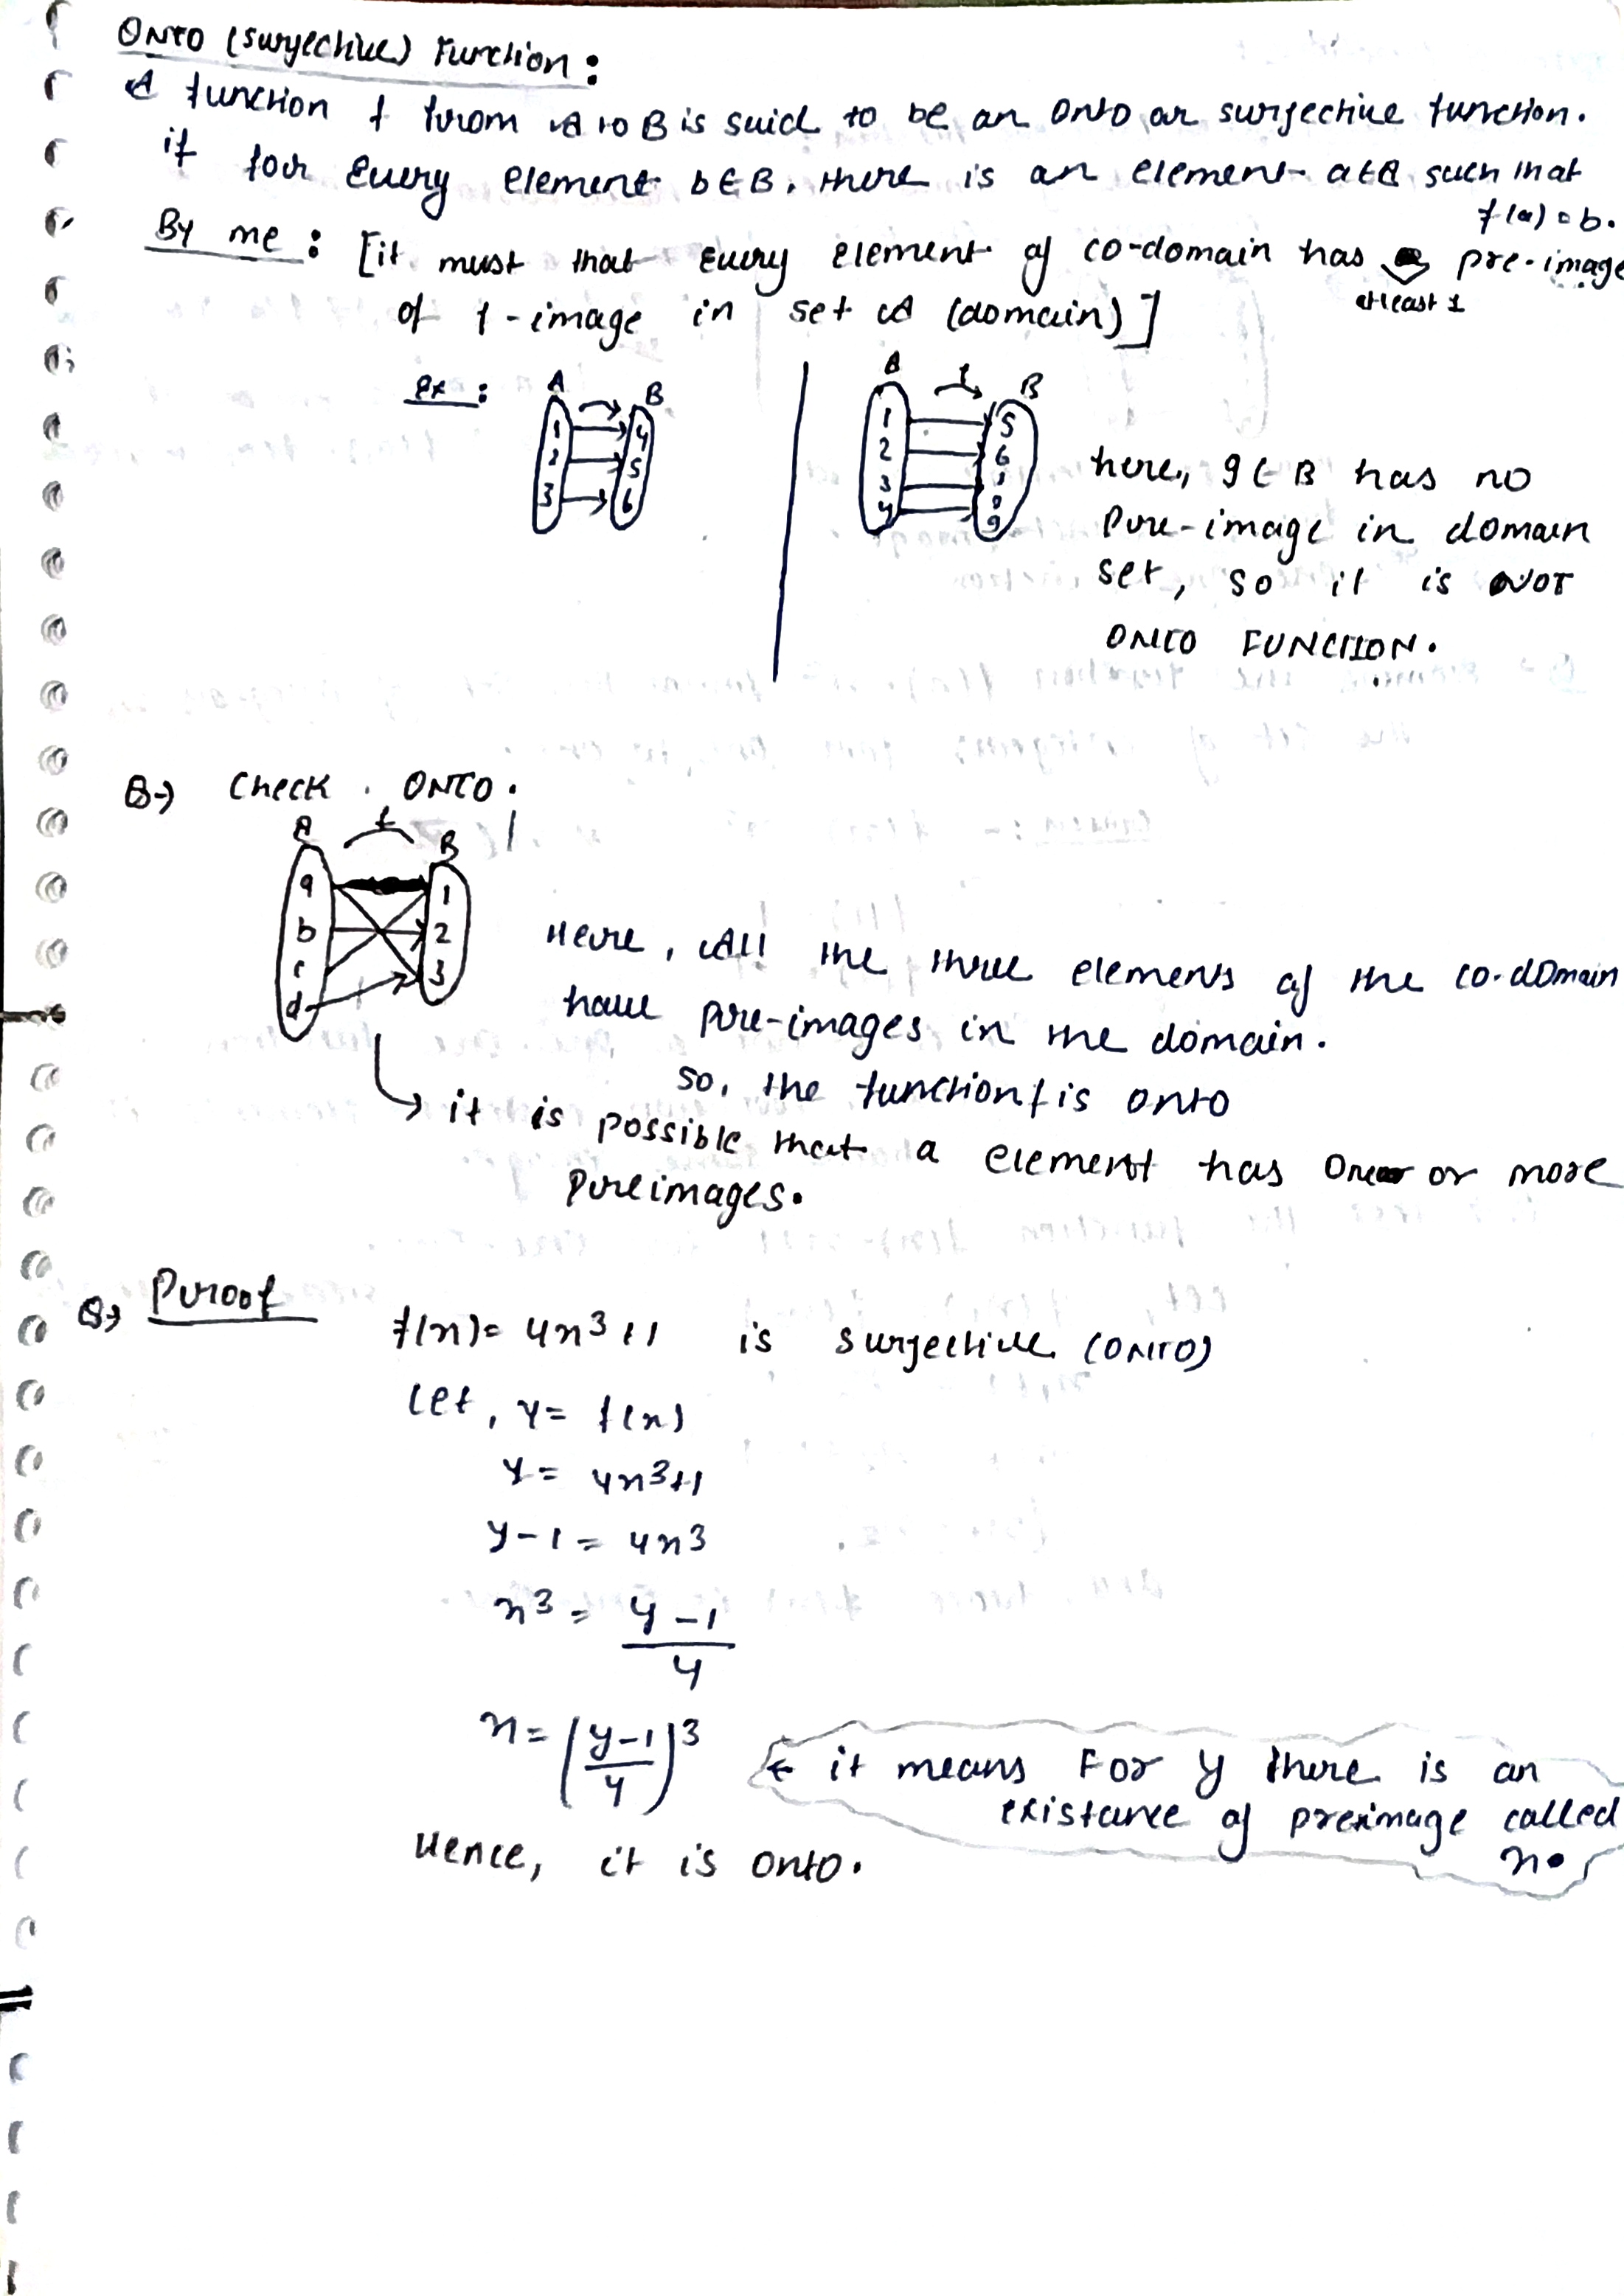 ONTO (surjective) Function :
A function f from A to B is said to be an onto or surjective function.
if for every element b∈B, there is an element a∈A such that
f(a) = b.
By me : [it must that every element of co-domain has pre-image
atleast 1
of f-image in set A (domain)]
ex :
A B
1 4
2 5
3 6
A f B
1 5
2 6
3 7
4 8
9
here, 9 ∈ B has no
pre-image in domain
set, so it is NOT
ONTO FUNCTION.
Q→ Check ONTO.
A f B
a 1
b 2
c 3
d
Here, All the three elements of the co-domain
have pre-images in the domain.
so, the function f is onto
it is possible that a element has one or more
preimages.
Q→ Proof
f(x) = 4x³+1 is surjective (ONTO)
Let, y = f(x)
y = 4x³+1
y-1 = 4x³
x³ = y-1/4
x = (y-1/4)³
← it means For y there is an
existance of preimage called
x.
Hence, it is onto.